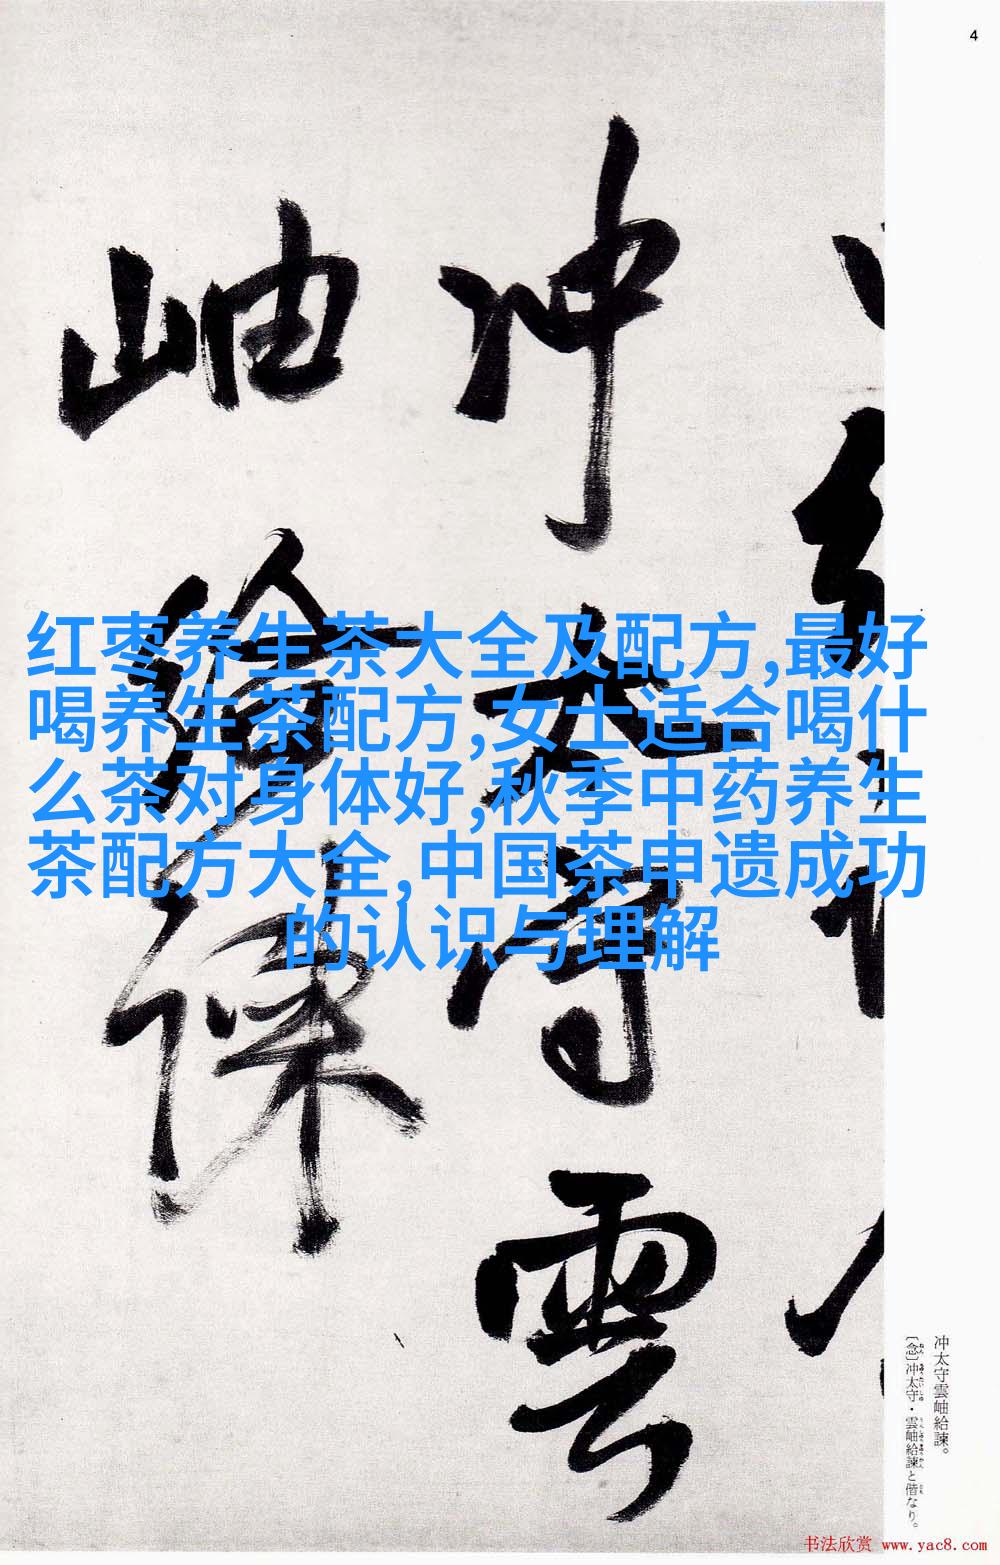 4
冲太守雲
岫給諫
红枣养生茶大全及配方,最好
喝养生茶配方,女士适合喝什
么茶对身体好,秋季中药养生
茶配方大全,中国茶申遗成功
的认识与理解
冲太守雲岫給諫。
〔念〕冲太守・雲岫給諫と偕なり。
书法欣赏 www.yac8.com